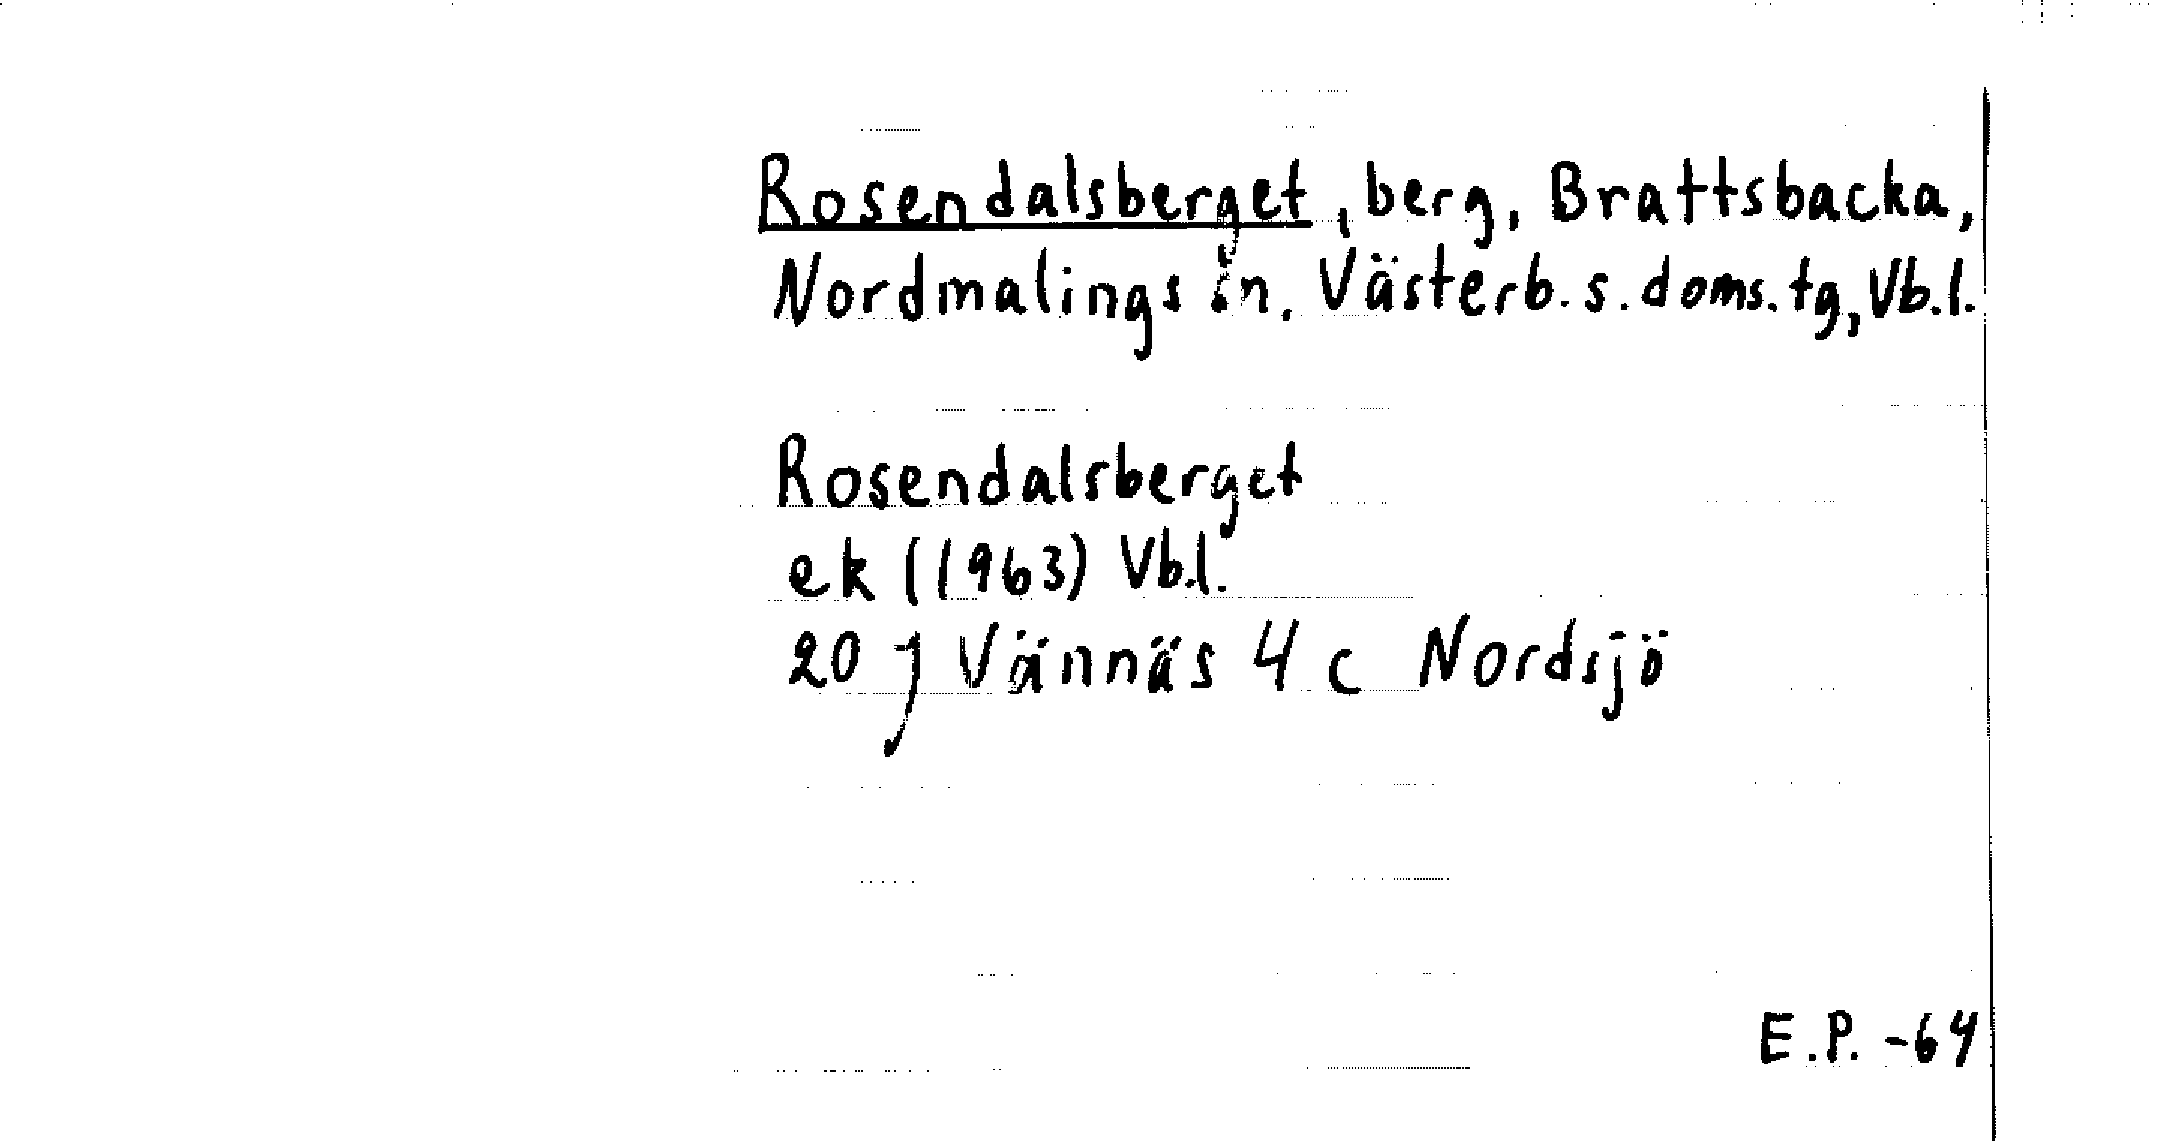 Rosendalsberget, berg, Brattsbacka,
Nordmalings sn. Västerb. s. doms. tg, Vb.l.
Rosendalsberget
ek (1963) Vb.l.
20 J Vännäs 4 c Nordsjö
E.P. -64